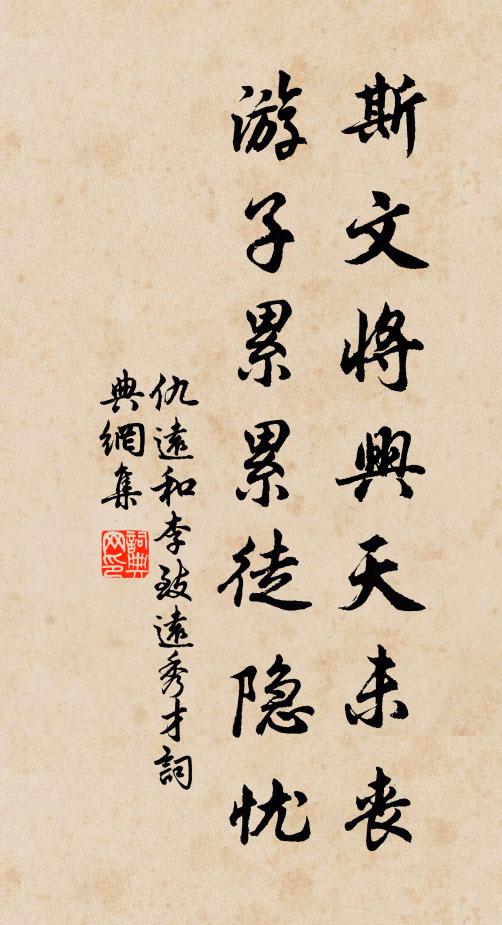 斯文将興天未丧
游子累累徒隐忧
仇遠和李致遠秀才詞
典網集
詞典
网印